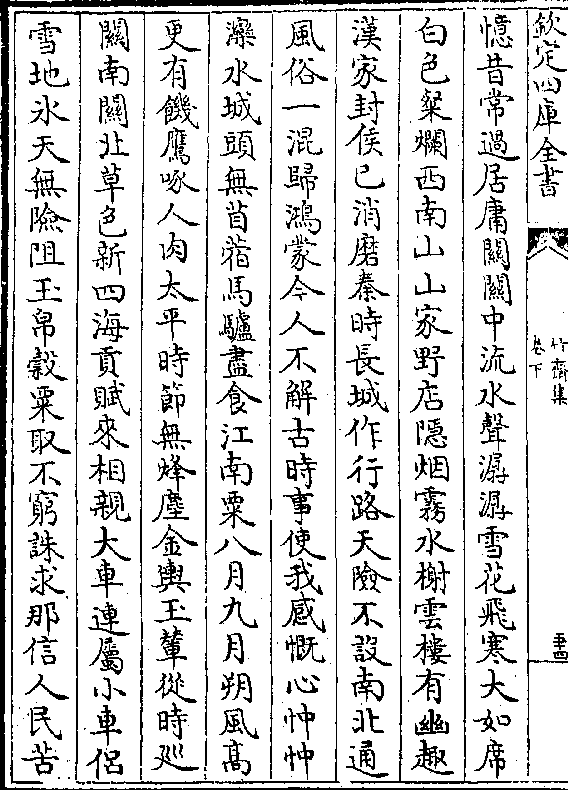 欽定四庫全書
竹齋集
卷下
憶昔常過居庸關關中流水聲潺潺雪花飛寒大如席
白色粲爛西南山山家野店隠烟霧水榭雲樓有幽趣
漢家封侯已消磨秦時長城作行路天險不設南北通
風俗一混歸鴻蒙今人不解古時事使我感慨心忡忡
灤水城頭無苜蓿馬驢盡食江南粟八月九月朔風髙
更有饑鷹啄人肉太平時節無烽塵金輿玉輦從時廵
關南關北草色新四海貢賦來相親大車連屬小車侶
雪地氷天無險阻玉帛榖粟取不窮誅求那信人民苦